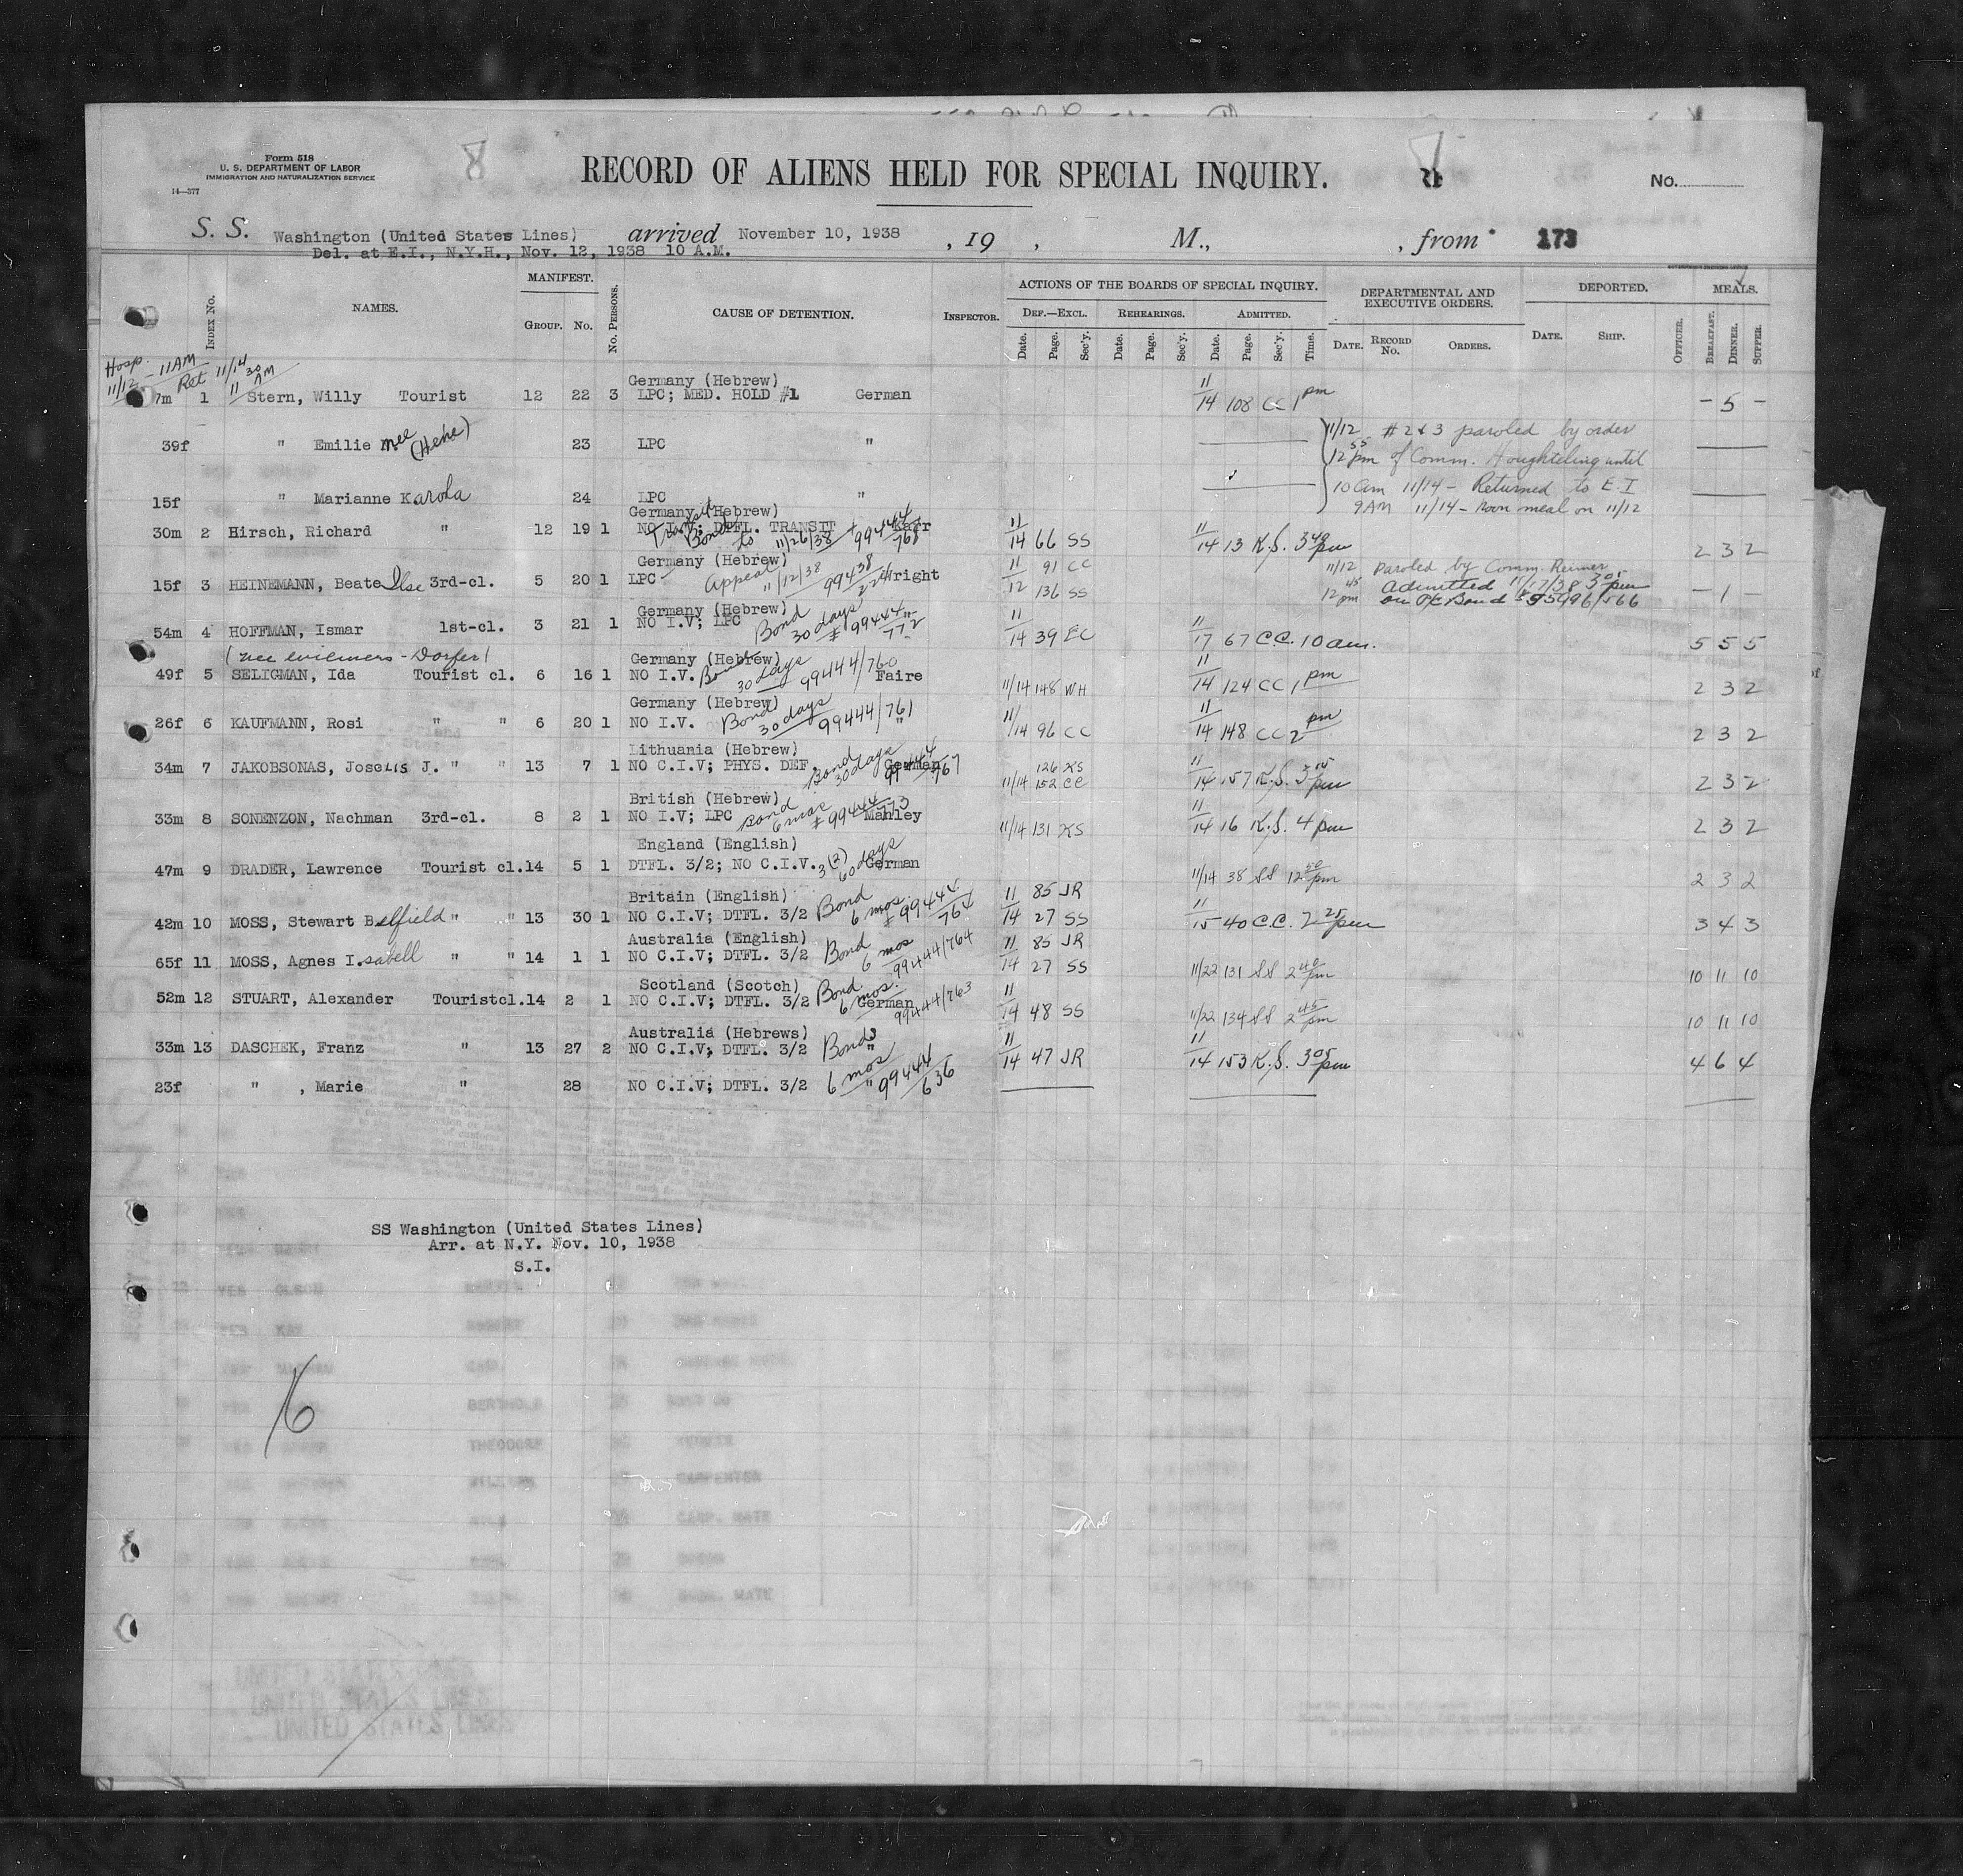 Form 518
U. S. DEPARTMENT OF LABOR
IMMIGRATION AND NATURALIZATION SERVICE
14—377
8
RECORD OF ALIENS HELD FOR SPECIAL INQUIRY.
No.
S. S. Washington (United States Lines) arrived November 10, 1938 , 19 , M., , from 173
Del. at E.I., N.Y.H., Nov. 12, 1938 10 A.M.
INDEX No. NAMES. MANIFEST. GROUP. No. No. PERSONS. CAUSE OF DETENTION. INSPECTOR. ACTIONS OF THE BOARDS OF SPECIAL INQUIRY. DEPARTMENTAL AND EXECUTIVE ORDERS. DEPORTED. MEALS.
DEF.—EXCL. REHEARINGS. ADMITTED.
Date. Page. Sec'y. Date. Page. Sec'y. Date. Page. Sec'y. Time. DATE. RECORD No. ORDERS. DATE. SHIP. OFFICER. BREAKFAST. DINNER. SUPPER.
Hosp. 11/12 - 11AM
Ret 11/14 11 30 AM
Germany (Hebrew)
7m 1 Stern, Willy Tourist 12 22 3 LPC; MED. HOLD #1 German 11/14 108 CC 1 pm - 5 -
39f " Emilie nee (Hehe) 23 LPC " 11/12 #2 & 3 paroled by order
12 55 pm of Comm. Houghteling until
15f " Marianne Karola 24 LPC " 10 am 11/14 - Returned to E.I
9AM 11/14 - noon meal on 11/12
Germany (Hebrew)
30m 2 Hirsch, Richard " 12 19 1 NO I.V; DTFL. TRANSIT Karr 11/14 66 SS 11/14 13 K.S. 3 40 pm 2 3 2
Transit Bond to 11/26/38 99444/768
Germany (Hebrew)
15f 3 HEINEMANN, Beate Ilse 3rd-cl. 5 20 1 LPC Appeal 11/12/38 99438/224 Wright 11/12 91 CC 136 SS 11/12 Paroled by Comm. Reimer - 1 -
12 45 pm Admitted 11/17/38 3 05 pm
on P/C Bond # 55996/566
Germany (Hebrew)
54m 4 HOFFMAN, Ismar 1st-cl. 3 21 1 NO I.V; LPC Bond 30 days # 99444/772 " 11/14 39 EC 11/17 67 C.C. 10 am. 5 5 5
Germany (Hebrew)
49f 5 SELIGMAN, Ida Tourist cl. 6 16 1 NO I.V. Bond 30 days 99444/760 Faire 11/14 148 WH 11/14 124 CC 1 pm 2 3 2
Germany (Hebrew)
26f 6 KAUFMANN, Rosi " " 6 20 1 NO I.V. Bond 30 days 99444/761 " 11/14 96 CC 11/14 148 CC 2 pm 2 3 2
Lithuania (Hebrew)
34m 7 JAKOBSONAS, Joselis J. " " 13 7 1 NO C.I.V; PHYS. DEF. Bond 30 days 99444/767 German 126 KS 11/14 152 CC 11/14 157 K.S. 3 15 pm 2 3 2
British (Hebrew)
33m 8 SONENZON, Nachman 3rd-cl. 8 2 1 NO I.V; LPC Bond 6 mos # 99444/773 Manley 11/14 131 KS 11/14 16 K.S. 4 pm 2 3 2
England (English)
47m 9 DRADER, Lawrence Tourist cl. 14 5 1 DTFL. 3/2; NO C.I.V. 3(2) 60 days German 11/14 38 SS 12 40 pm 2 3 2
Britain (English)
42m 10 MOSS, Stewart Belfield " " 13 30 1 NO C.I.V; DTFL. 3/2 Bond 6 mos. # 99444/764 11/14 85 JR 27 SS 11/15 40 C.C. 2 25 pm 3 4 3
Australia (English)
65f 11 MOSS, Agnes I.sabell " " 14 1 1 NO C.I.V; DTFL. 3/2 Bond 6 mos 99444/764 11/14 85 JR 27 SS 11/22 131 SS 2 40 pm 10 11 10
Scotland (Scotch)
52m 12 STUART, Alexander Touristcl. 14 2 1 NO C.I.V; DTFL. 3/2 Bond 6 mos. 99444/763 German 11/14 48 SS 11/22 134 SS 2 45 pm 10 11 10
Australia (Hebrews)
33m 13 DASCHEK, Franz " 13 27 2 NO C.I.V; DTFL. 3/2 Bond " 11/14 47 JR 11/14 153 K.S. 3 05 pm 4 6 4
23f " , Marie " 28 NO C.I.V; DTFL. 3/2 6 mos " 99444/636
SS Washington (United States Lines)
Arr. at N.Y. Nov. 10, 1938
S.I.
16
UNITED STATES LINES